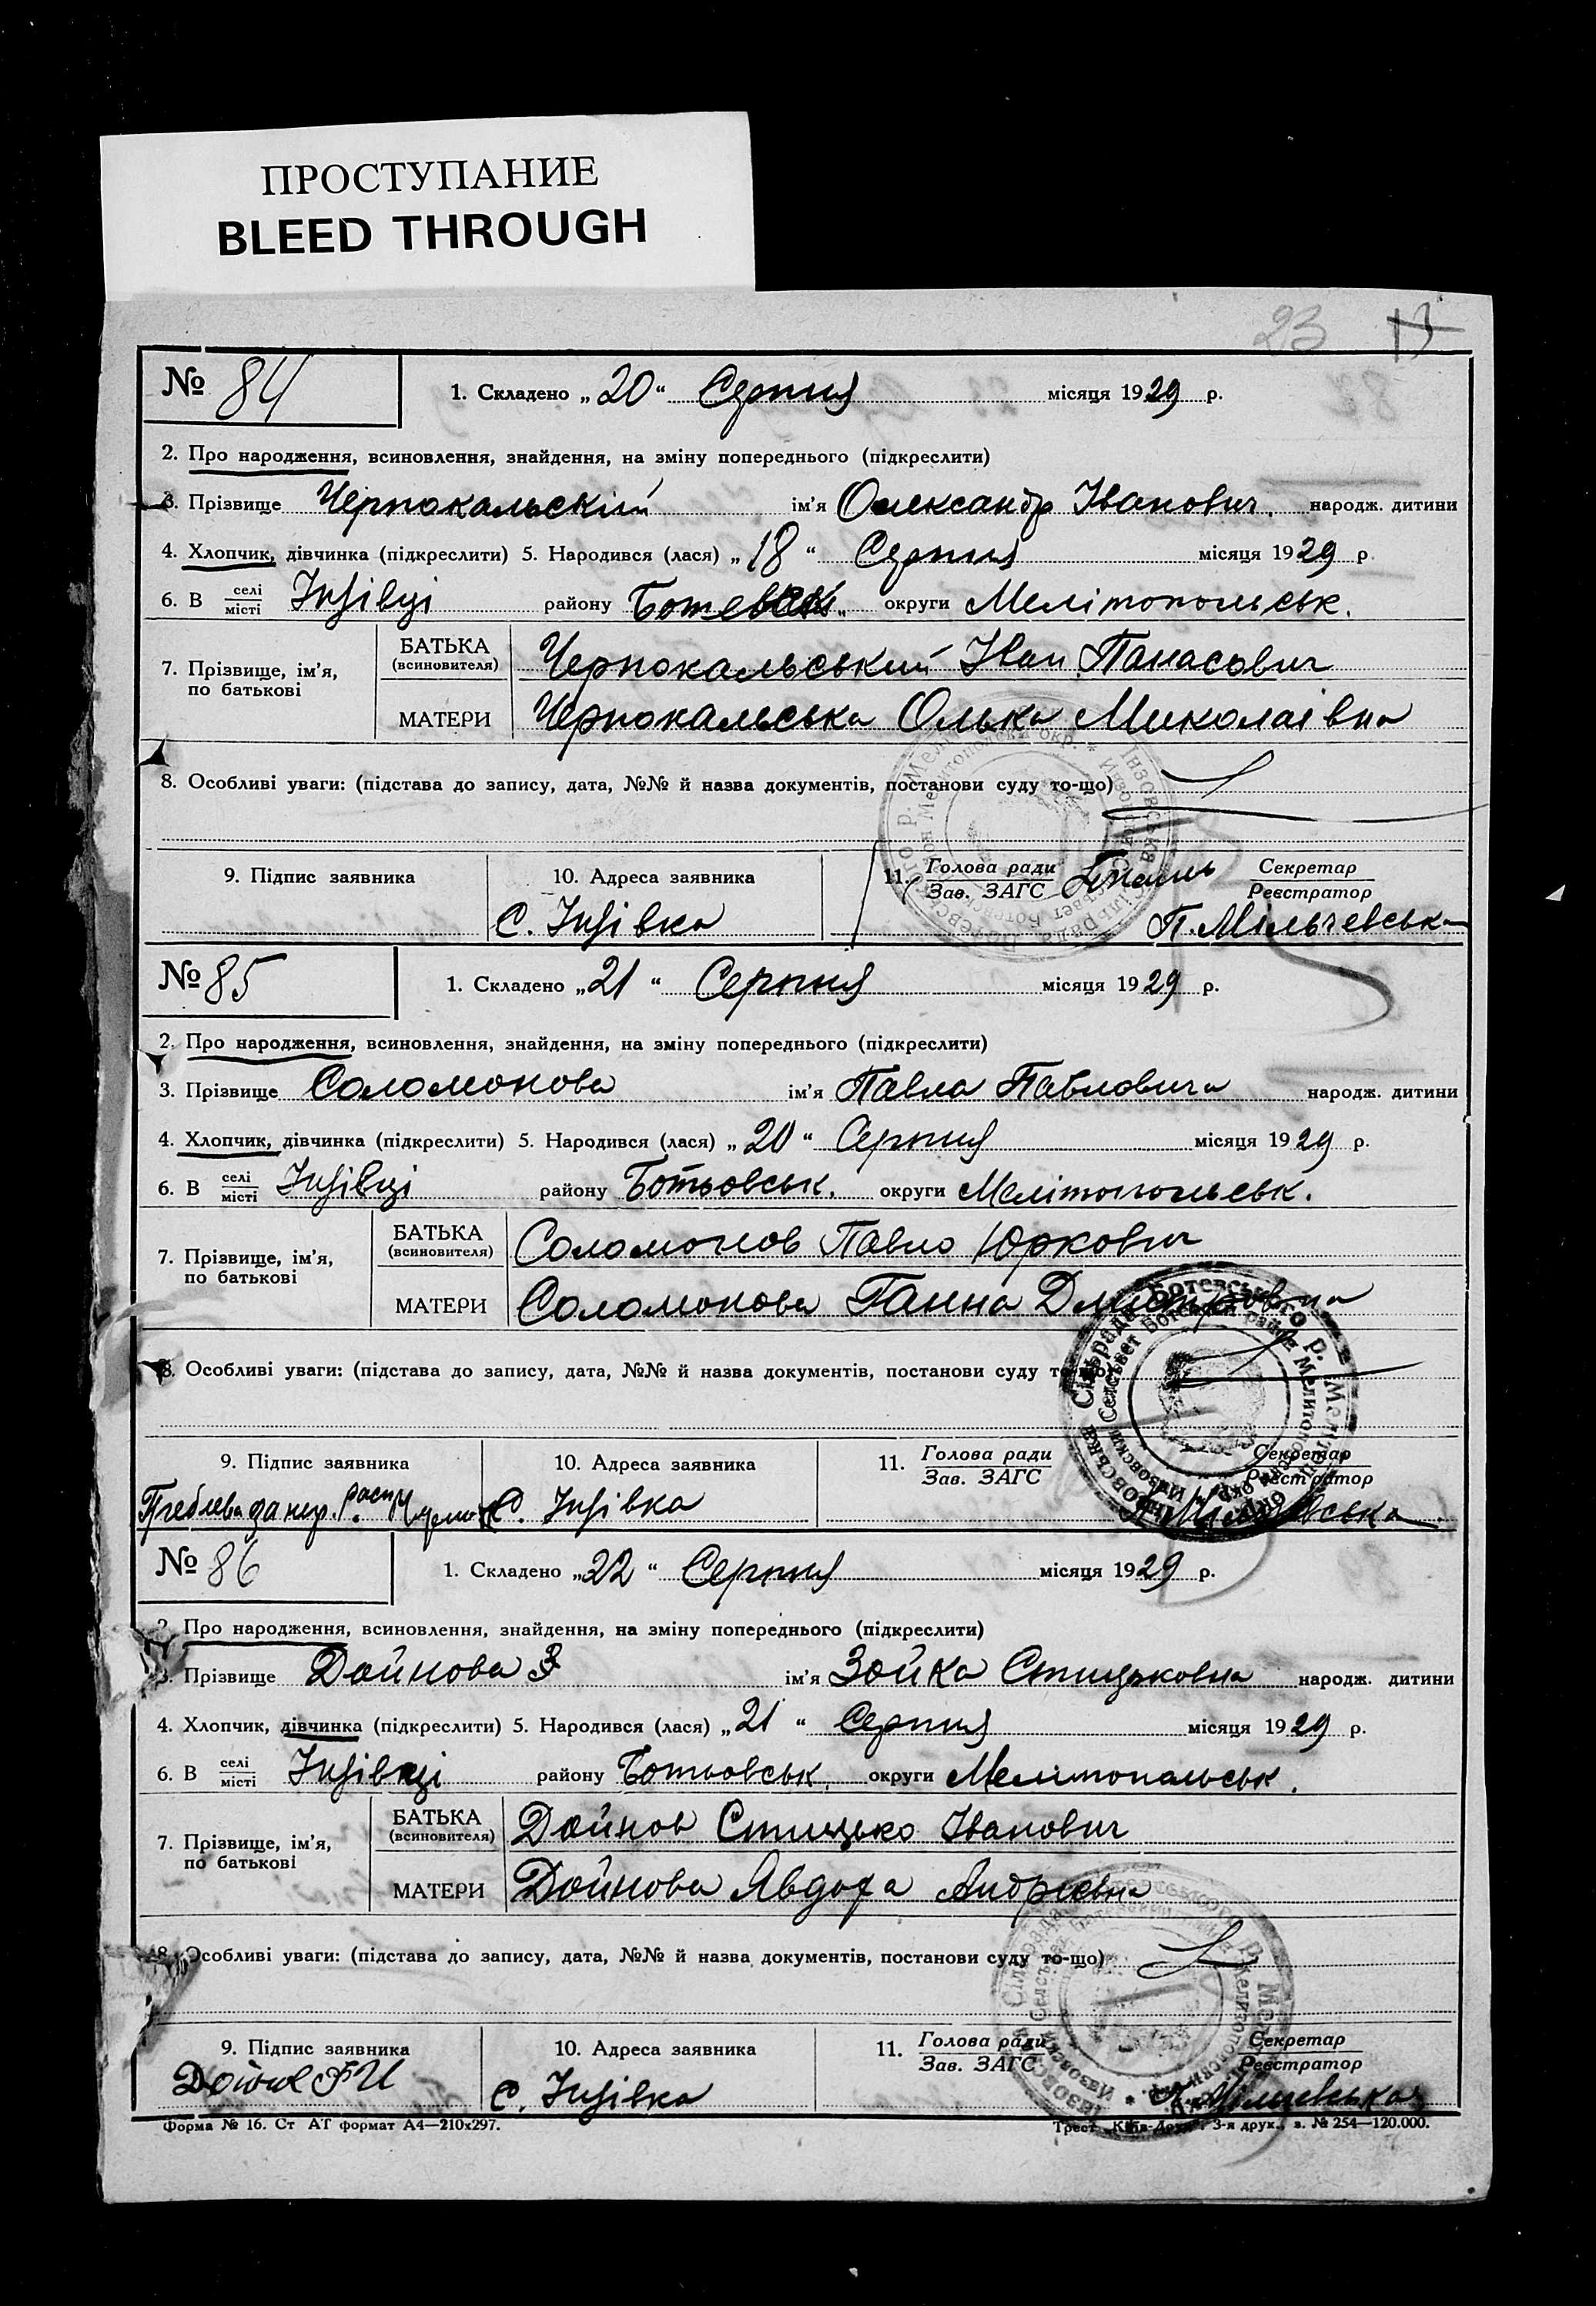 ПРОСТУПАНИЕ
BLEED THROUGH
23 13
№ 84 1. Складено „20“ Серпня місяця 1929 р.
2. Про народження, всиновлення, знайдення, на зміну попереднього (підкреслити)
3. Прізвище Чернокальский ім’я Олександр Іванович. народж. дитини
4. Хлопчик, дівчинка (підкреслити) 5. Народився (лася) „18“ Серпня місяця 1929 р
6. В селі місті Інзівці району округи Мелітопольськ.
7. Прізвище, ім’я, по батькові
БАТЬКА (всиновителя) Чернокальський Іван Панасович
МАТЕРИ Чернокальська Олька Миколаівна
8. Особливі уваги: (підстава до запису, дата, №№ й назва документів, постанови суду то-що)
9. Підпис заявника 10. Адреса заявника 11. Голова ради Зав. ЗАГС Секретар Реєстратор
С. Інзівка П. Мільчевська
№ 85 1. Складено „21“ Серпня місяця 1929 р.
2. Про народження, всиновлення, знайдення, на зміну попереднього (підкреслити)
3. Прізвище Соломонова ім’я Павла Павловича народж. дитини
4. Хлопчик, дівчинка (підкреслити) 5. Народився (лася) „20“ Серпня місяця 1929 р.
6. В селі місті Інзівці району Ботьовськ. округи Мелітопольськ.
7. Прізвище, ім’я, по батькові
БАТЬКА (всиновителя) Соломонов Павло Юркович
МАТЕРИ Соломонова Ганна
8. Особливі уваги: (підстава до запису, дата, №№ й назва документів, постанови суду
9. Підпис заявника 10. Адреса заявника 11. Голова ради Зав. ЗАГС Секретар Реєстратор
С. Інзівка
№ 86 1. Складено „22“ Серпня місяця 1929 р.
2. Про народження, всиновлення, знайдення, на зміну попереднього (підкреслити)
3. Прізвище Дойнова З ім’я Зойка Стицьковна народж. дитини
4. Хлопчик, дівчинка (підкреслити) 5. Народився (лася) „21“ Серпня місяця 1929 р.
6. В селі місті Інзівці району Ботьовськ. округи Мелитопальськ.
7. Прізвище, ім’я, по батькові
БАТЬКА (всиновителя) Дойнов Стицько Іванович
МАТЕРИ Дойнова Явдоха Андрієвна
8. Особливі уваги: (підстава до запису, дата, №№ й назва документів, постанови суду то-що)
9. Підпис заявника 10. Адреса заявника 11. Голова ради Зав. ЗАГС Секретар Реєстратор
С. Інзівка
Форма № 16. Ст АТ формат А4—210х297. Трест „Київ-Друк“, 3-я друк., з. № 254—120.000.